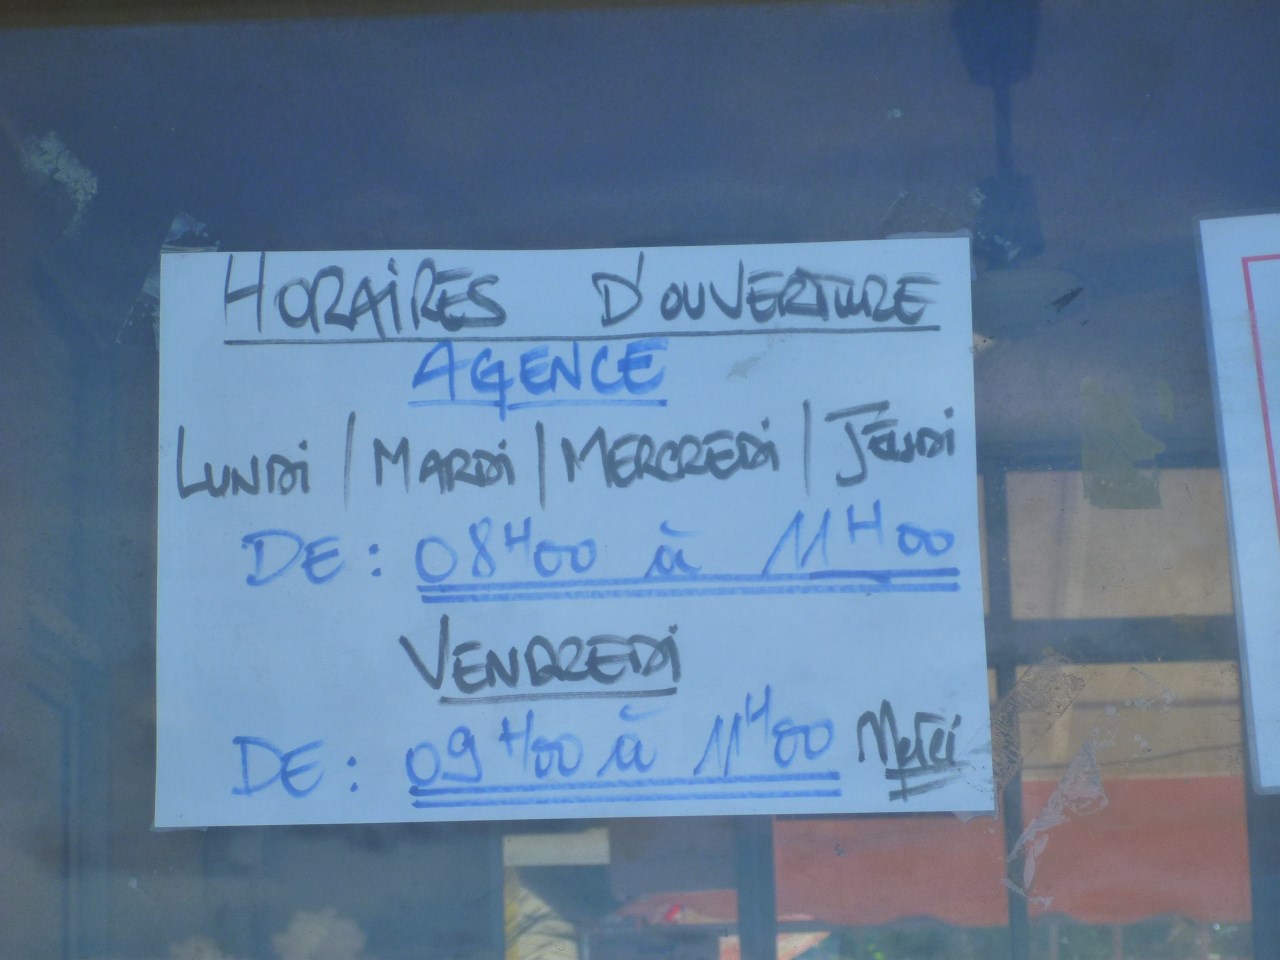 HORAiRES D'OUVERTURE
AGENCE
LUNDi | MARDi | MERCREDi | JEUDi
DE : 08H00 à 11H00
VENDREDi
DE : 09H00 à 11H00 Merci